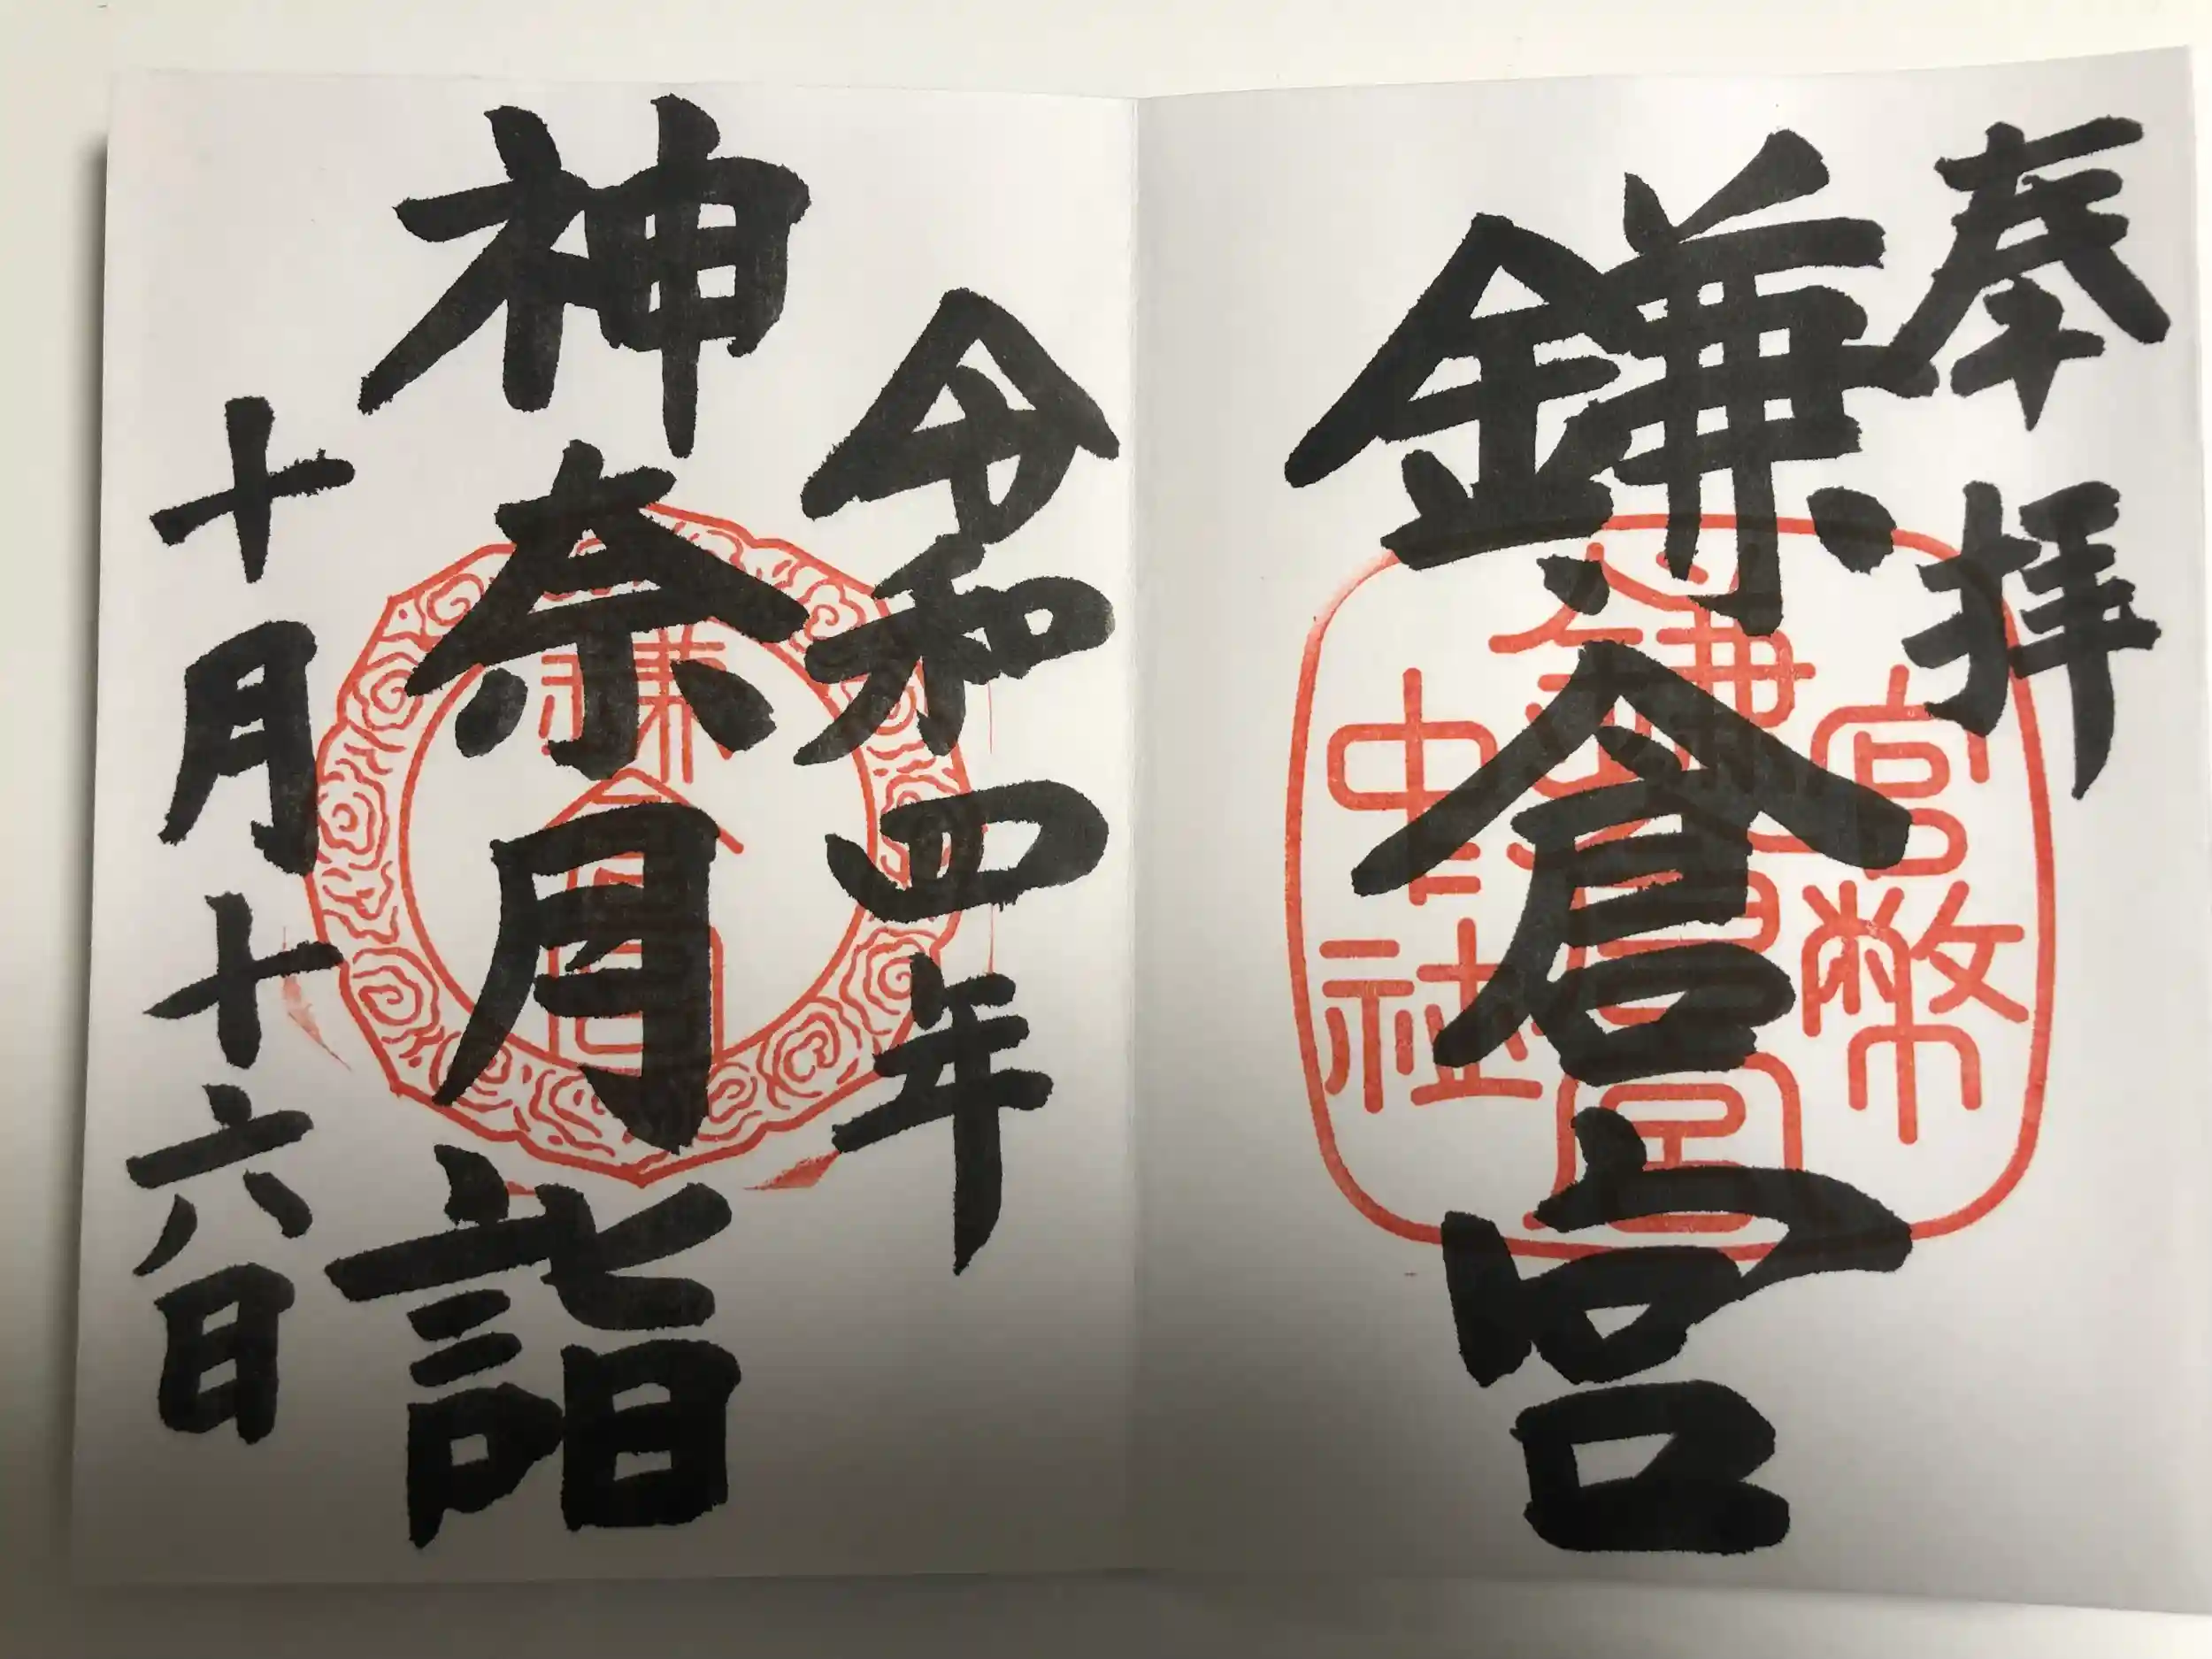 奉拝
鎌倉宮
官幣
鎌倉宮
中社
令和四年
神奈月詣
鎌倉
十月十六日